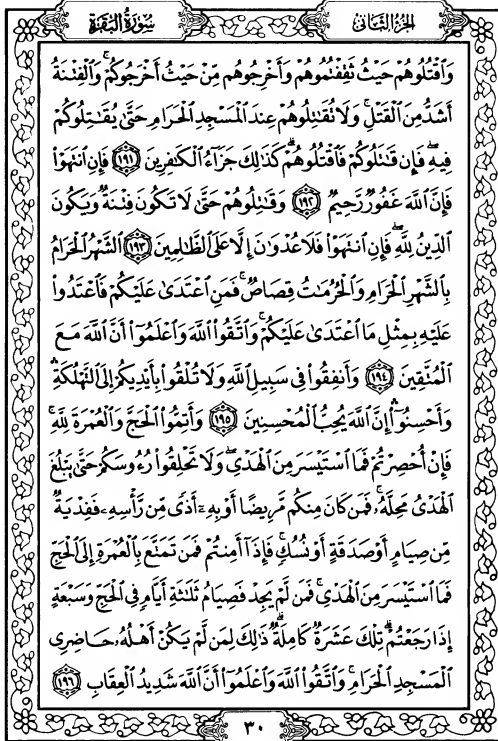 سُورَةُ البَقَرَةِ
الجُزْءُ الثَّانِي
وَاقْتُلُوهُمْ حَيْثُ ثَقِفْتُمُوهُمْ وَأَخْرِجُوهُم مِّنْ حَيْثُ أَخْرَجُوكُمْ ۚ وَالْفِتْنَةُ
أَشَدُّ مِنَ الْقَتْلِ ۚ وَلَا تُقَٰتِلُوهُمْ عِندَ الْمَسْجِدِ الْحَرَامِ حَتَّىٰ يُقَٰتِلُوكُمْ
فِيهِ ۖ فَإِن قَٰتَلُوكُمْ فَاقْتُلُوهُمْ ۗ كَذَٰلِكَ جَزَآءُ الْكَٰفِرِينَ ١٩١ فَإِنِ انتَهَوْا۟
فَإِنَّ اللَّهَ غَفُورٌ رَّحِيمٌ ١٩٢ وَقَٰتِلُوهُمْ حَتَّىٰ لَا تَكُونَ فِتْنَةٌ وَيَكُونَ
الدِّينُ لِلَّهِ ۖ فَإِنِ انتَهَوْا۟ فَلَا عُدْوَٰنَ إِلَّا عَلَى الظَّٰلِمِينَ ١٩٣ الشَّهْرُ الْحَرَامُ
بِالشَّهْرِ الْحَرَامِ وَالْحُرُمَٰتُ قِصَاصٌ ۚ فَمَنِ اعْتَدَىٰ عَلَيْكُمْ فَاعْتَدُوا۟
عَلَيْهِ بِمِثْلِ مَا اعْتَدَىٰ عَلَيْكُمْ ۚ وَاتَّقُوا۟ اللَّهَ وَاعْلَمُوٓا۟ أَنَّ اللَّهَ مَعَ
الْمُتَّقِينَ ١٩٤ وَأَنفِقُوا۟ فِى سَبِيلِ اللَّهِ وَلَا تُلْقُوا۟ بِأَيْدِيكُمْ إِلَى التَّهْلُكَةِ ۛ
وَأَحْسِنُوٓا۟ ۛ إِنَّ اللَّهَ يُحِبُّ الْمُحْسِنِينَ ١٩٥ وَأَتِمُّوا۟ الْحَجَّ وَالْعُمْرَةَ لِلَّهِ ۚ
فَإِنْ أُحْصِرْتُمْ فَمَا اسْتَيْسَرَ مِنَ الْهَدْىِ ۖ وَلَا تَحْلِقُوا۟ رُءُوسَكُمْ حَتَّىٰ يَبْلُغَ
الْهَدْىُ مَحِلَّهُۥ ۚ فَمَن كَانَ مِنكُم مَّرِيضًا أَوْ بِهِۦٓ أَذًى مِّن رَّأْسِهِۦ فَفِدْيَةٌ
مِّن صِيَامٍ أَوْ صَدَقَةٍ أَوْ نُسُكٍ ۚ فَإِذَآ أَمِنتُمْ فَمَن تَمَتَّعَ بِالْعُمْرَةِ إِلَى الْحَجِّ
فَمَا اسْتَيْسَرَ مِنَ الْهَدْىِ ۚ فَمَن لَّمْ يَجِدْ فَصِيَامُ ثَلَٰثَةِ أَيَّامٍ فِى الْحَجِّ وَسَبْعَةٍ
إِذَا رَجَعْتُمْ ۗ تِلْكَ عَشَرَةٌ كَامِلَةٌ ۗ ذَٰلِكَ لِمَن لَّمْ يَكُنْ أَهْلُهُۥ حَاضِرِى
الْمَسْجِدِ الْحَرَامِ ۚ وَاتَّقُوا۟ اللَّهَ وَاعْلَمُوٓا۟ أَنَّ اللَّهَ شَدِيدُ الْعِقَابِ ١٩٦
٣٠